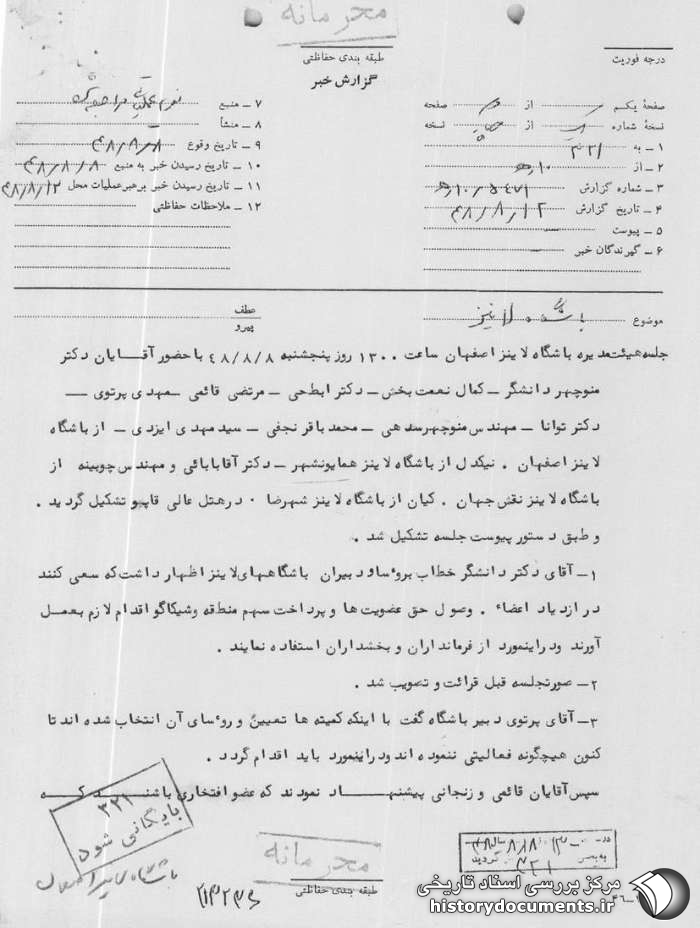 محرمانه
طبقه بندی حفاظتی
گزارش خبر
درجه فوریت
صفحهٔ یکم از صفحه
نسخهٔ شماره از نسخه
۱ ـ به ۳۲۱
۲ ـ از ۱۰ھ
۳ ـ شماره گزارش
۴ ـ تاریخ گزارش ۴۸/۸/۱۲
۵ ـ پیوست
۶ ـ گیرندگان خبر
۷ ـ منبع
۸ ـ منشأ
۹ ـ تاریخ وقوع ۴۸/۸/۸
۱۰ ـ تاریخ رسیدن خبر به منبع ۴۸/۸/۸
۱۱ ـ تاریخ رسیدن خبر برهبر عملیات محل ۴۸/۸/۱۲
۱۲ ـ ملاحظات حفاظتی
موضوع باشگاه لاینز
عطف
پیرو
جلسه هیئت مدیره باشگاه لاینز اصفهان ساعت ۱۳۰۰ روز پنجشنبه ۴۸/۸/۸ با حضور آقایان دکتر
منوچهر دانشگر ـ کمال نعمت بخش ـ دکتر ابطحی ـ مرتضی قائمی ـ مهدی پرتوی ـ
دکتر توانا ـ مهندس منوچهر سدهی ـ محمد باقر نجفی ـ سید مهدی ایزدی ـ از باشگاه
لاینز اصفهان . نیکدل از باشگاه لاینز همایونشهر ـ دکتر آقابابائی و مهندس چوبینه از
باشگاه لاینز نقش جهان . کیان از باشگاه لاینز شهرضا . در هتل عالی قاپو تشکیل گردید .
و طبق دستور پیوست جلسه تشکیل شد .
۱ ـ آقای دکتر دانشگر خطاب بروساو دبیران باشگاههای لاینز اظهار داشت که سعی کنند
در ازدیاد اعضاء . وصول حق عضویت ها و پرداخت سهم منطقه و شیکاگو اقدام لازم بعمل
آورند ودر اینمورد از فرمانداران و بخشداران استفاده نمایند .
۲ ـ صورتجلسه قبل قرائت و تصویب شد .
۳ ـ آقای پرتوی دبیر باشگاه گفت با اینکه کمیته ها تعیین و روسای آن انتخاب شده اند تا
کنون هیچگونه فعالیتی ننموده اند ودر اینمورد باید اقدام گردد .
سپس آقایان قائمی و زنجانی پیشنهاد نمودند که عضو افتخاری باشند که
۳۲۱
بایگانی شود
باشگاه لاینز اصفهان
محرمانه
طبقه بندی حفاظتی
مرکز بررسی اسناد تاریخی
historydocuments.ir